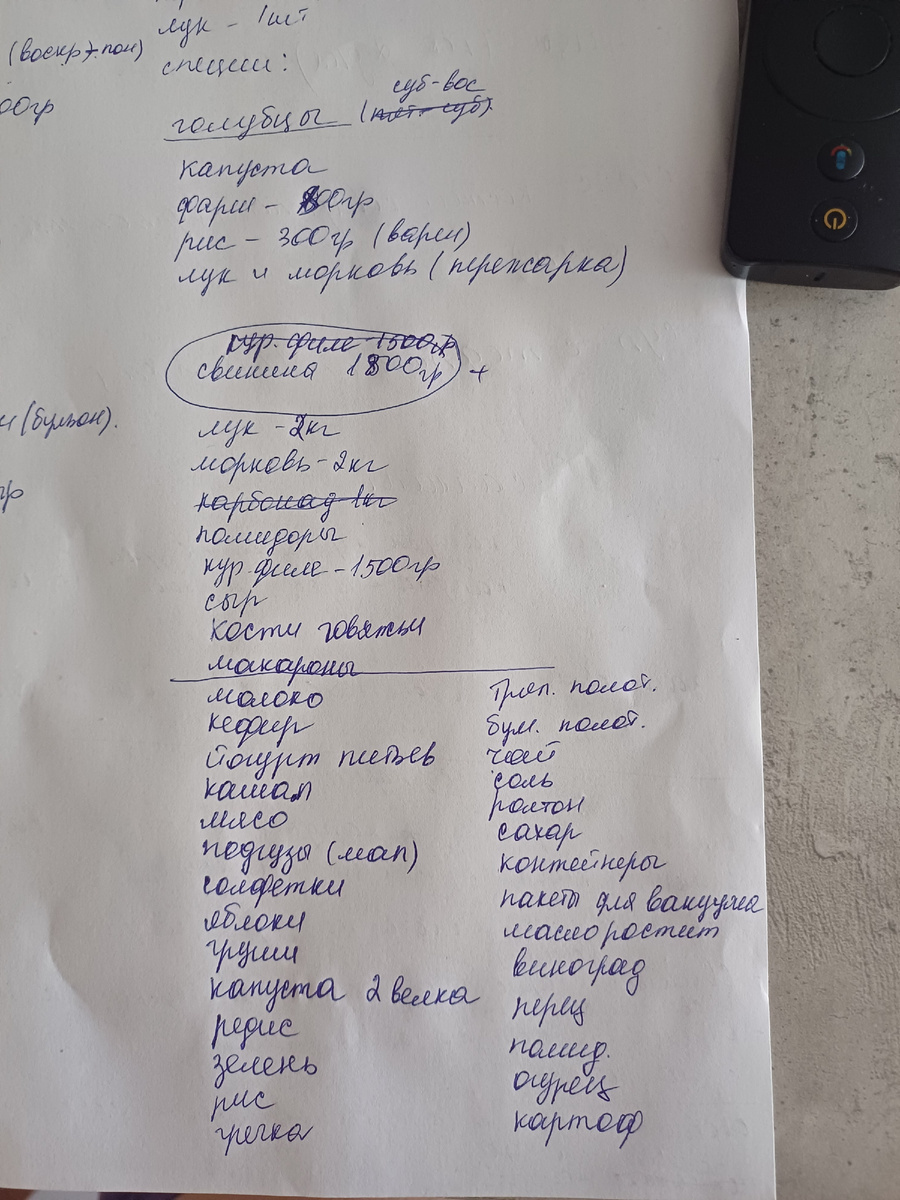 лук - 1шт
(воскр-пон)
специи:
00гр
суб-вос
голубцы (пят-суб)
капуста
фарш - 800гр
рис - 300гр (варш)
лук и морковь (пережарка)
кур. филе 1500гр
свинина 1800гр +
(бульон).
лук - 2кг
морковь - 2кг
гр
карбонад 1кг
помидоры
кур. филе - 1500гр
сыр
кости говяжьи
макароны
молоко
кефир
йогурт питьев
кашам
мясо
подгузы (мал)
салфетки
яблоки
груши
капуста 2 велка
редис
зелень
рис
гречка
Тряп. полот.
бум. полот.
чай
соль
ролтон
сахар
контейнеры
пакеты для вакуума
масло ростит
виноград
перец
помид.
огурец
картоф